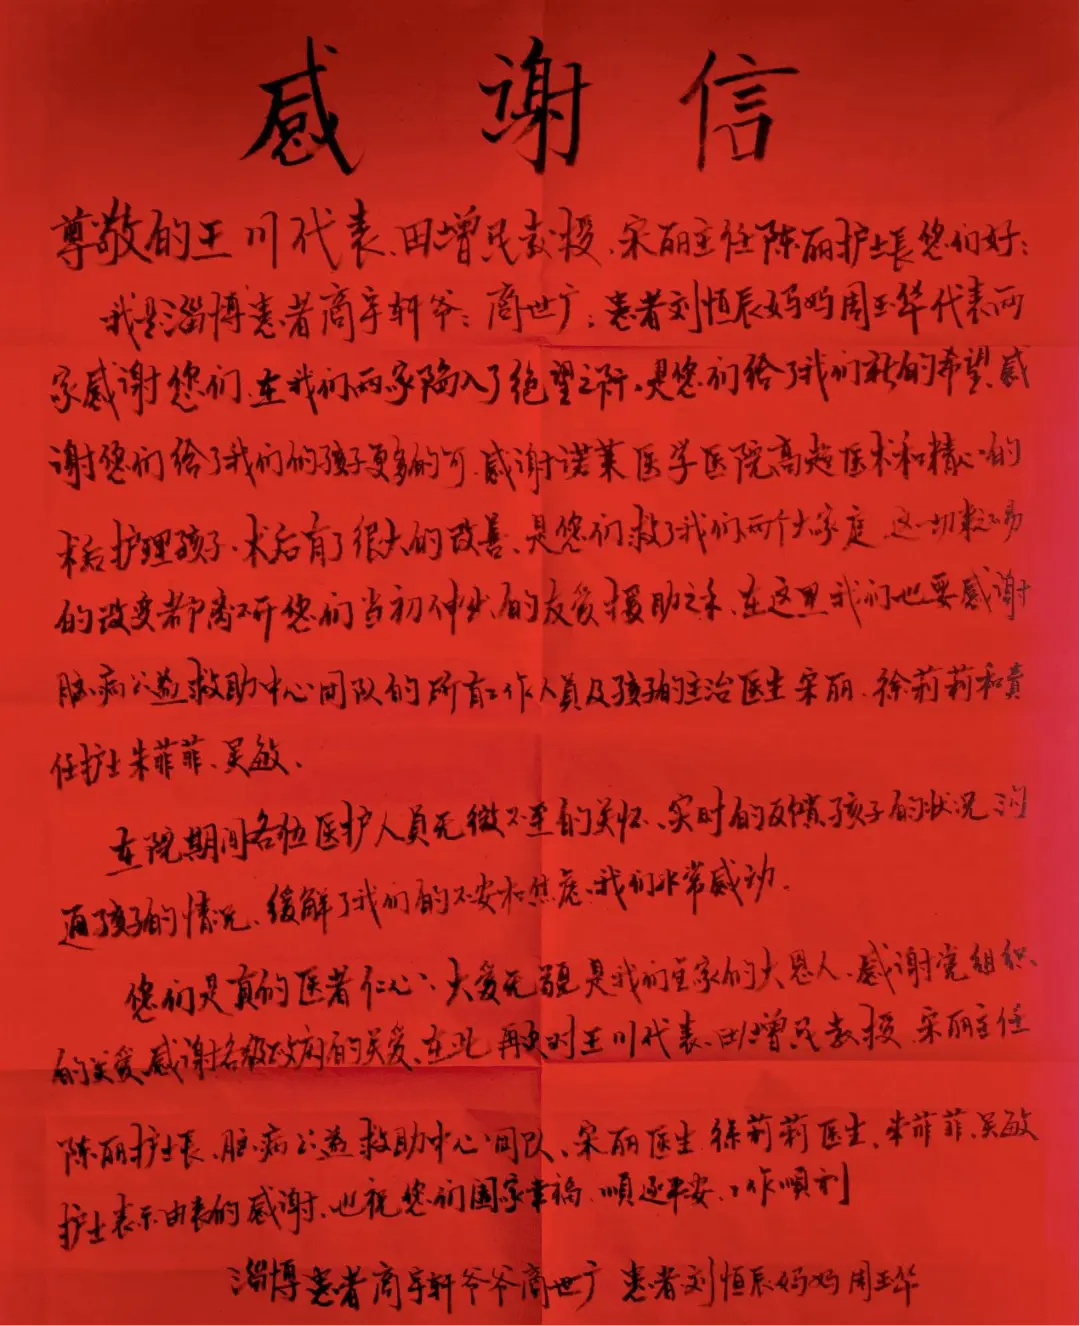 感谢信
尊敬的王川代表、田增民教授、宋丽主任陈丽护士长您们好：
我是淄博患者商宇轩爷：商世广；患者刘恒辰妈妈周玉华代表两
家感谢您们、在我们两家陷入了绝望之际、是您们给了我们新的希望、感
谢您们给了我们的孩子更多的可、感谢诺莱医学医院高超医术和精心的
术后护理孩子、术后有了很大的改善、是您们救了我们两个大家庭、这一切来之不易
的改变都离不开您们当初伸出的友爱援助之手、在这里我们也要感谢
脑病公益救助中心团队的所有工作人员及孩子的主治医生宋丽、徐莉莉和责
任护士朱菲菲、吴敏、
在院期间各位医护人员无微不至的关怀、实时的反馈孩子的状况 沟
通孩子的情况、缓解了我们的不安和焦虑、我们非常感动、
您们是真的医者仁心、大爱无疆是我们全家的大恩人、感谢党组织、
的关爱、感谢各级政府的关爱、在此 再次对王川代表、田增民教授、宋丽主任
陈丽护士长、脑病公益救助中心团队、宋丽医生 徐莉莉医生、朱菲菲、吴敏
护士表示由衷的感谢、也祝您们阖家幸福、顺遂平安、工作顺利
淄博患者商宇轩爷爷商世广 患者刘恒辰妈妈周玉华